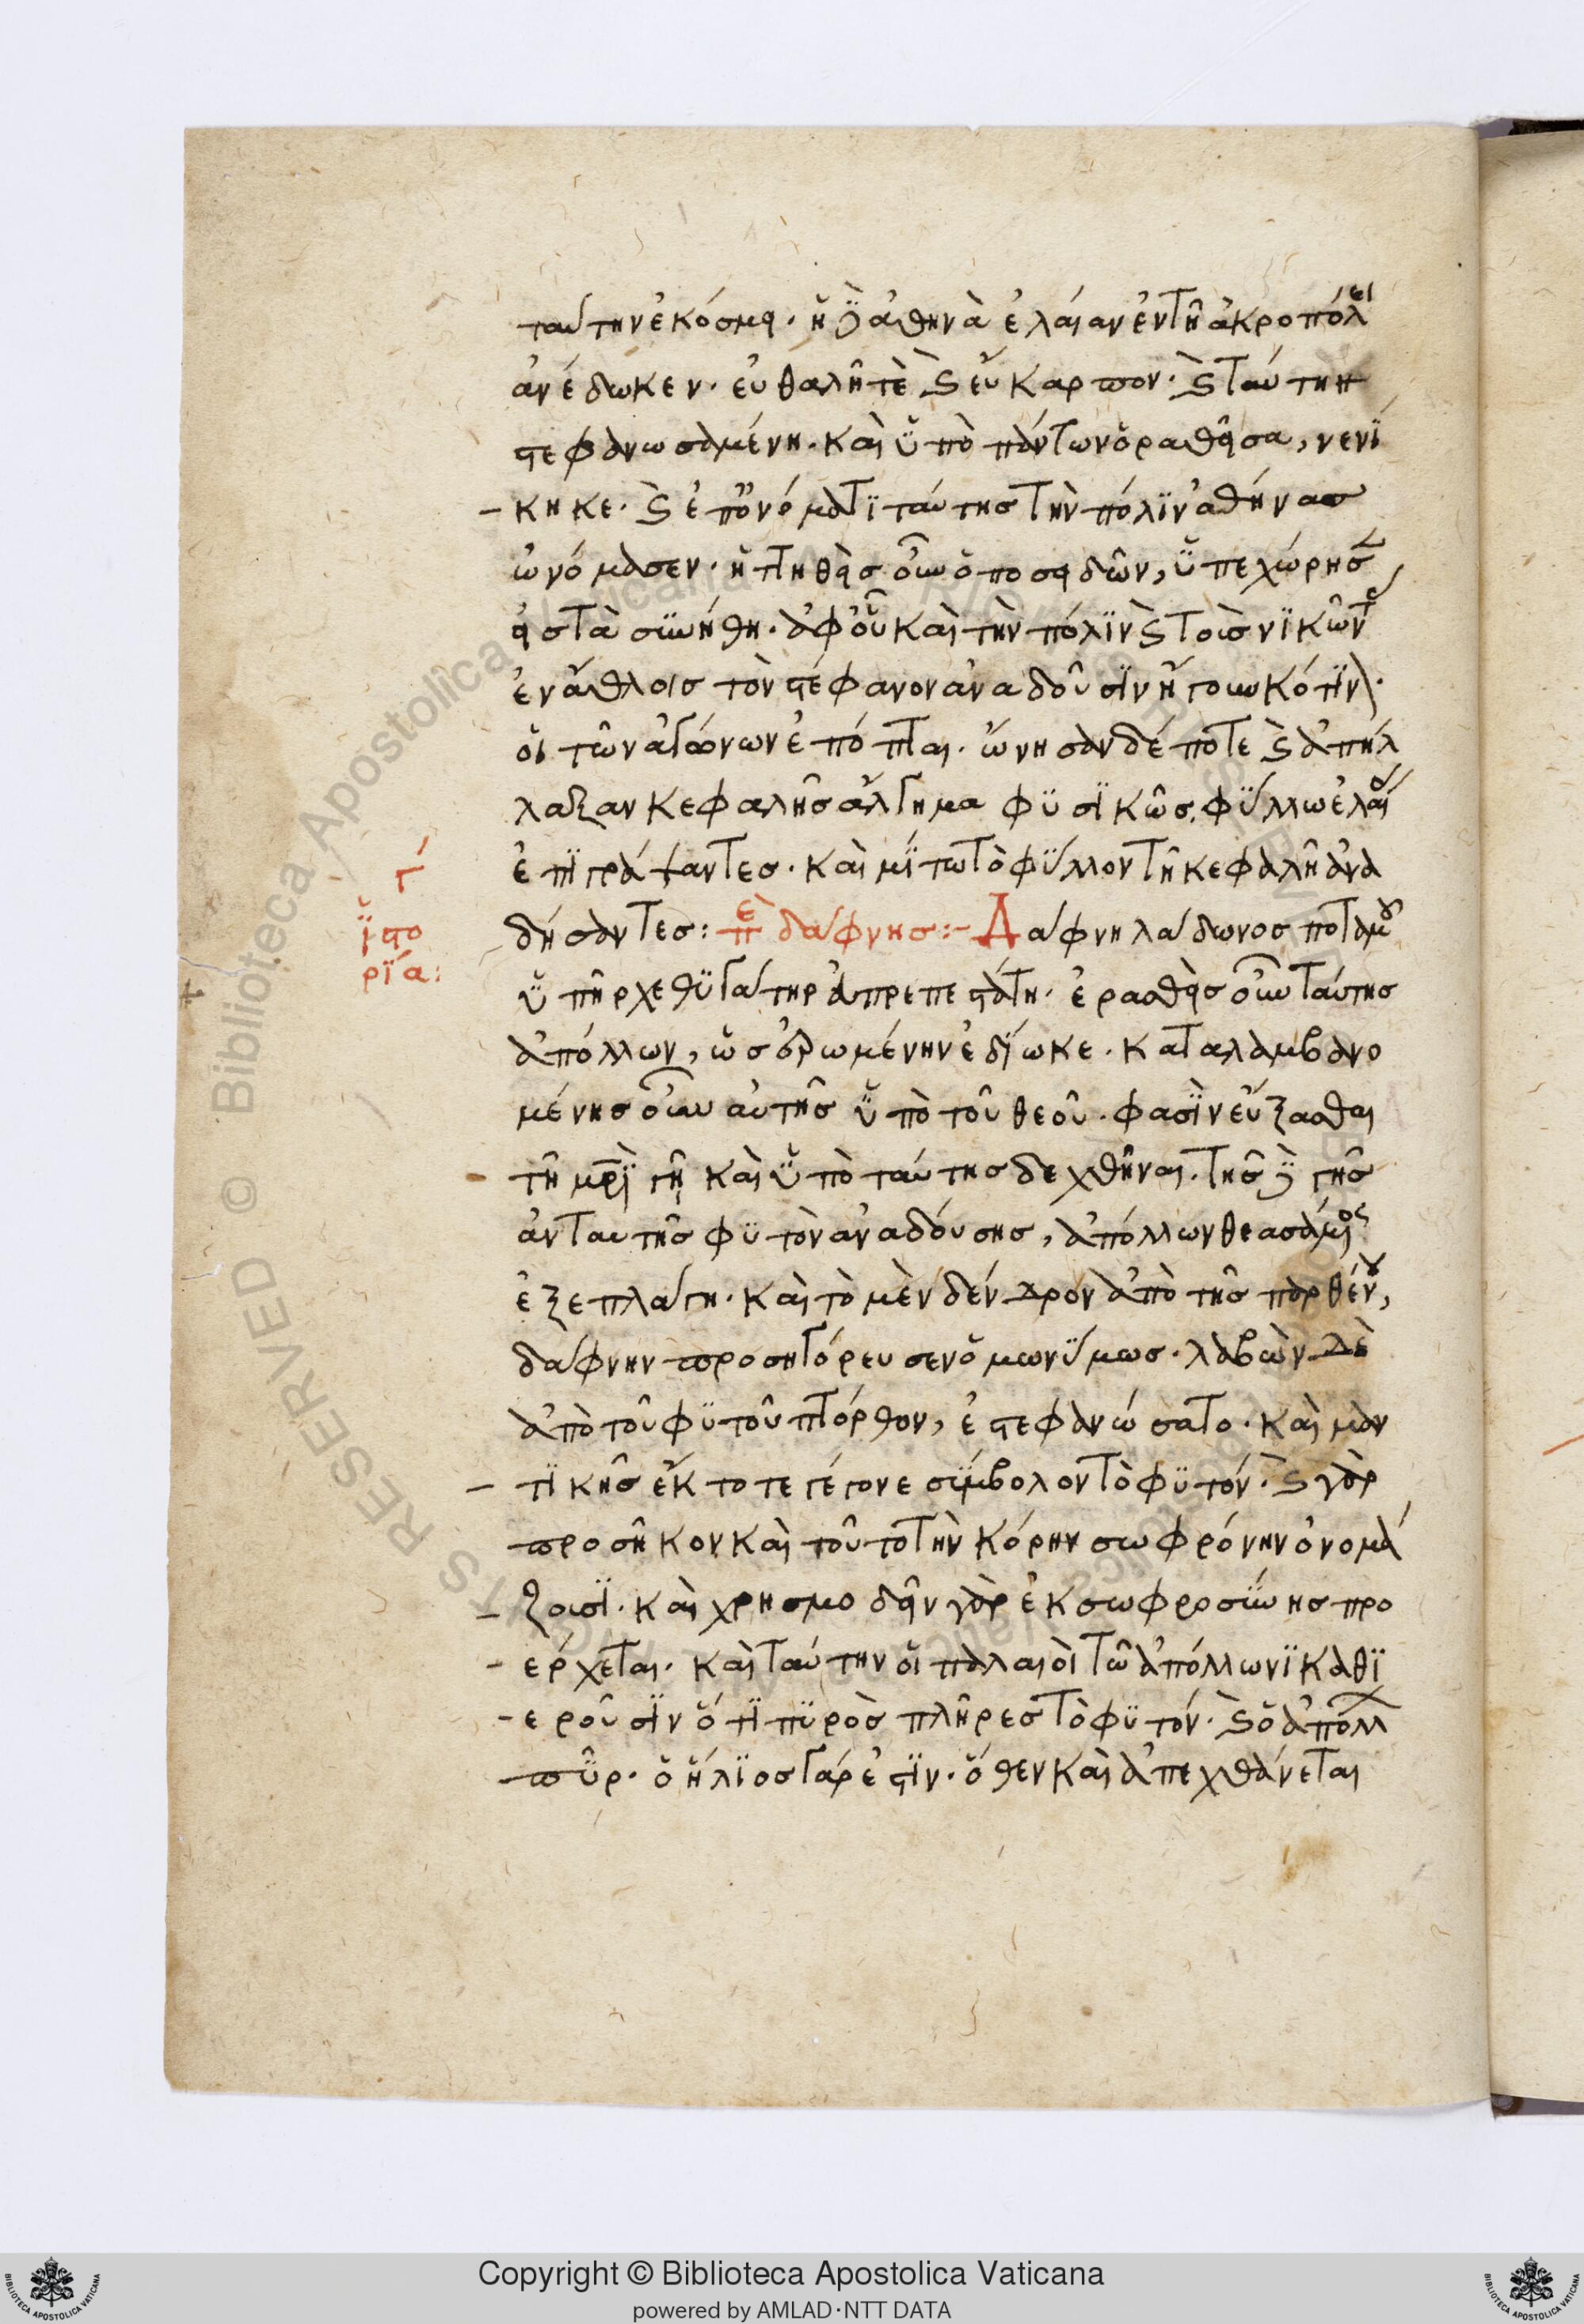 ταύτην ἐκόσμει· ἡ δὲ ἀθηνᾶ ἐλαίαν ἐν τῆ ἀκροπόλει
ἀνέδωκεν· εὐθαλῆ τὲ καὶ εὔκαρπον· καὶ ταύτην
στεφανωσαμένη. καὶ ὑπὸ πάντων ὁραθεῖσα, νενί
κηκε· καὶ ἐπ' ὀνόματι ταύτης τὴν πόλιν ἀθήνας
ὠνόμασεν· ἡττηθεὶς οὖν ὁ ποσειδῶν, ὑπεχώρησεν
εἰς τὰ συνήθη. ἀφ' οὗ καὶ τὴν πόλιν καὶ τοῖς νικῶντ
ἐν ἄθλοις τὸν στέφανον ἀναδοῦσιν ἤγουν κότιν·
οἱ τῶν ἀγώνων ἐπόπται. ὤνησαν δέ ποτε καὶ ἀπήλ
λαξαν κεφαλῆς ἄλγημα φυσικῶς, φύλλω ἐλαίας
ἐπιγράψαντες. καὶ μίτω τὸ φύλλον τῆ κεφαλῆ ἀνα
δήσαντες: περὶ δάφνης:- Δάφνη λάδωνος ποταμοῦ
Γ
ἱστο
ρία:
ὑπῆρχε θυγάτηρ ἀπρεπεστάτη. ἐρασθεὶς οὖν ταύτης
ἀπόλλων, ὡς ὁρωμένην ἐδίωκε. καταλαμβανο
μένης οὖν αὐτῆς ὑπὸ τοῦ θεοῦ. φασὶν εὔξασθαι
τῆ μητρὶ γῆ καὶ ὑπὸ ταύτης δεχθῆναι. τῆς δὲ γῆς
ἀντ αυτῆς φυτὸν ἀναδούσης, ἀπόλλων θεασάμενος
ἐξεπλάγη. καὶ τὸ μὲν δένδρον ἀπὸ τῆς παρθένου,
δάφνην προσηγόρευσεν ὁμωνύμως. λαβὼν δὲ
ἀπὸ τοῦ φυτοῦ πτόρθον, ἐστεφανώσατο. καὶ μαν
τικῆς ἔκτοτε γέγονε σύμβολον τὸ φυτόν. καὶ γὰρ
προσῆκον καὶ τοῦτο τὴν κόρην σωφρόνην ὀνομά
ζουσι. καὶ χρησμοδεῖν γὰρ ἐκ σωφροσύνης προ
ερχεται. καὶ ταύτην οἱ παλαιοὶ τῶ ἀπόλλωνι καθι
εροῦσιν ὅτι πυρὸς πλῆρες τὸ φυτόν. καὶ ὁ ἀπόλλων
πῦρ. ὁ ἥλιος γάρ ἐστιν. ὅθεν καὶ ἀπεχθάνεται
Copyright © Biblioteca Apostolica Vaticana
powered by AMLAD·NTT DATA